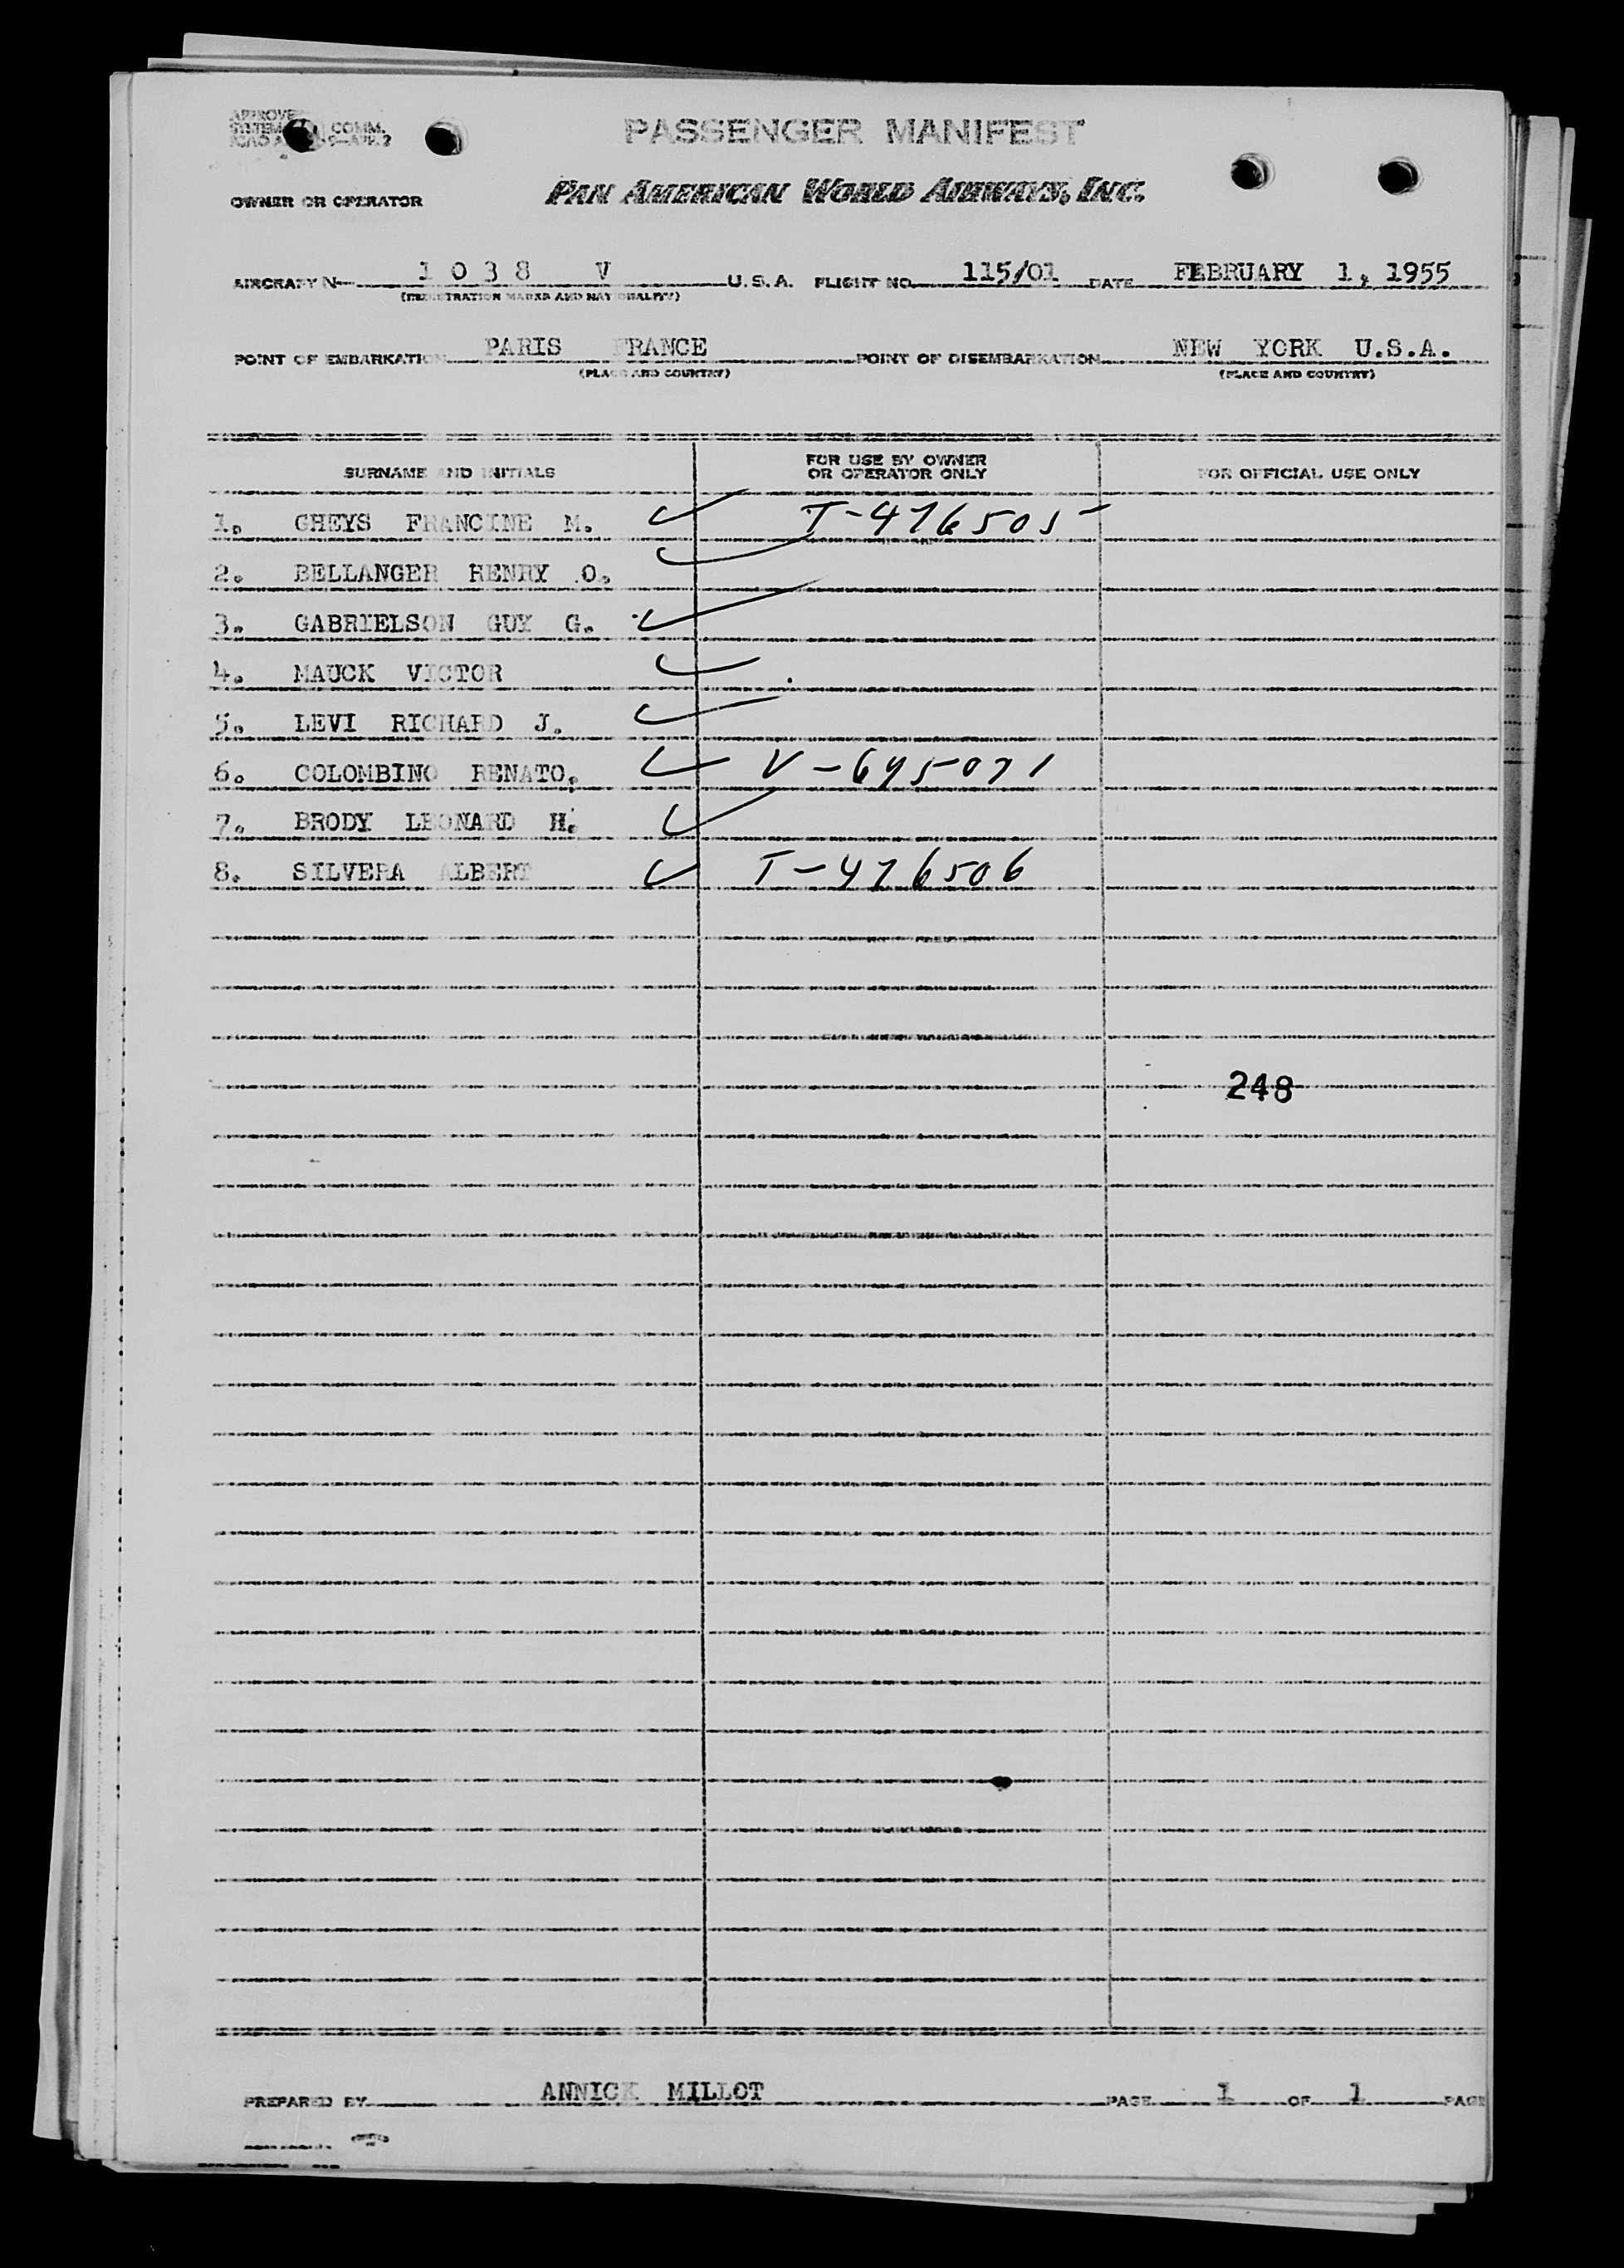 PASSENGER MANIFEST
OWNER OR OPERATOR PAN AMERICAN WORLD AIRWAYS, INC.
AIRCRAFT N 1 0 3 8 V U.S.A. FLIGHT NO. 115/01 DATE FEBRUARY 1, 1955
(REGISTRATION MARKS AND NATIONALITY)
POINT OF EMBARKATION PARIS FRANCE POINT OF DISEMBARKATION NEW YORK U.S.A.
(PLACE AND COUNTRY) (PLACE AND COUNTRY)
SURNAME AND INITIALS FOR USE BY OWNER OR OPERATOR ONLY FOR OFFICIAL USE ONLY
1. GHEYS FRANCINE M. ✓ T-476505
2. BELLANGER HENRY O. ✓
3. GABRIELSON GUY G. ✓
4. MAUCK VICTOR ✓
5. LEVI RICHARD J. ✓
6. COLOMBINO RENATO. ✓ V-645071
7. BRODY LEONARD H. ✓
8. SILVERA ALBERT ✓ T-476506
248
PREPARED BY ANNICK MILLOT PAGE 1 OF 1 PAGE